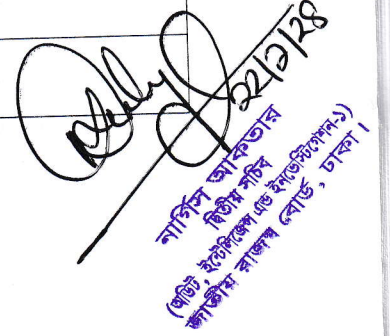 ২২/২/২৪
নার্গিস আকতার
দ্বিতীয় সচিব
(অডিট, ইন্টেলিজেন্স এন্ড ইনভেস্টিগেশন-১)
জাতীয় রাজস্ব বোর্ড, ঢাকা।